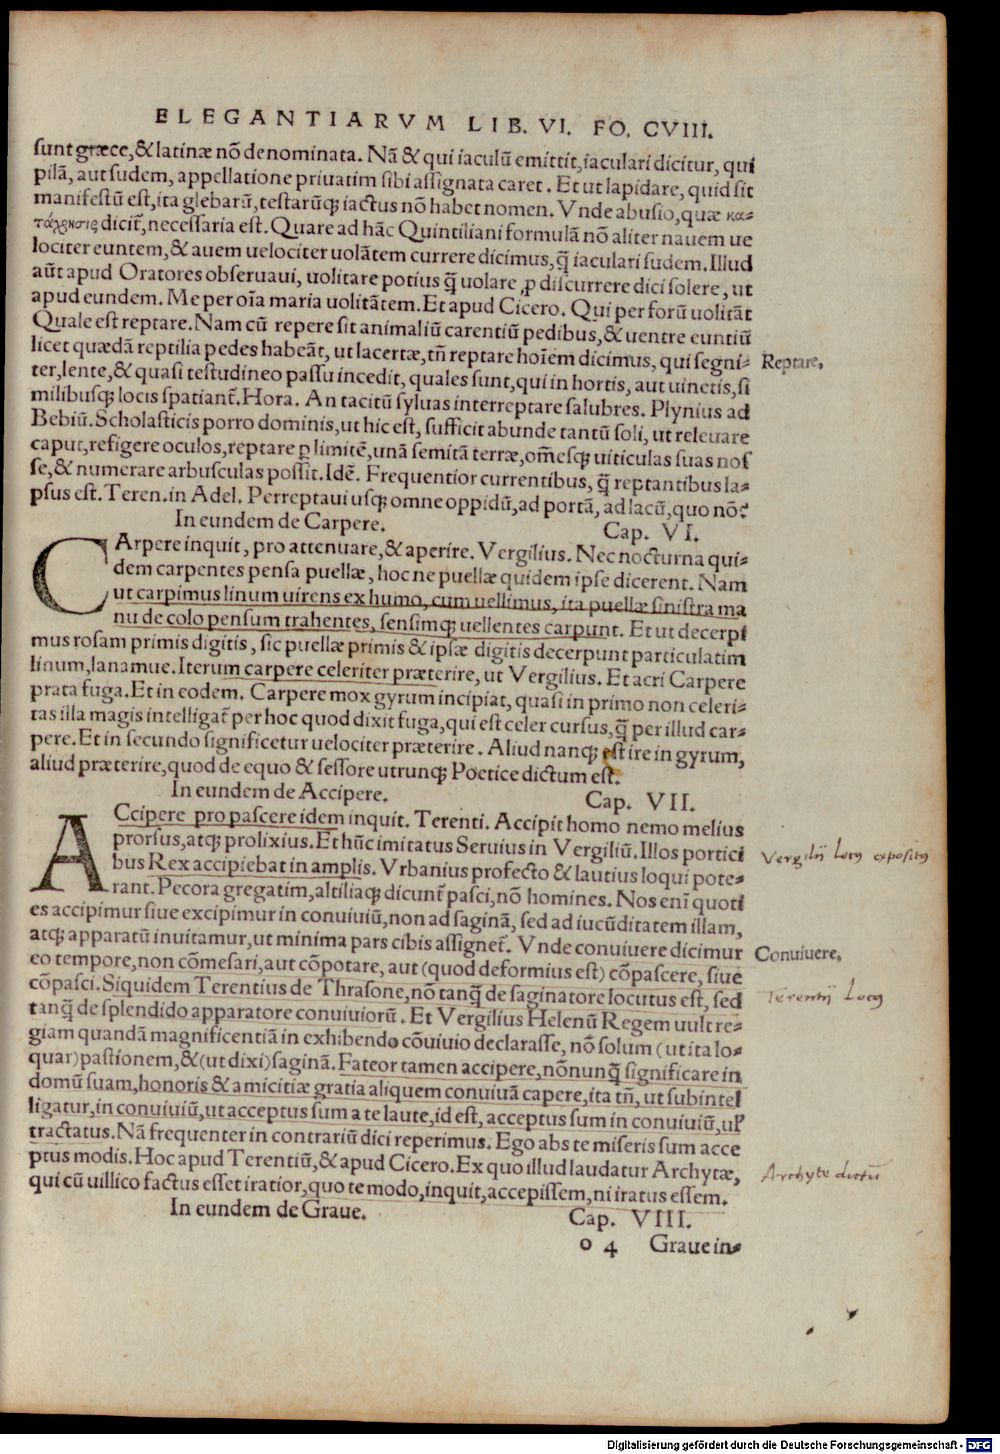 ELEGANTIARVM LIB. VI. FO. CVIII.
sunt græce,&latinæ nõ denominata. Nã & qui iaculũ emittit, iaculari dicitur, qui
pilã, aut sudem, appellatione priuatim sibi assignata caret. Et ut lapidare, quid sit
manifestũ est, ita glebarũ, testarũq; iactus nõ habet nomen. Vnde abusio, quæ κα-
τάχρησις dicit̃, necessaria est. Quare ad hãc Quintiliani formulã nõ aliter nauem ue
lociter euntem,& auem uelociter uolãtem currere dicimus, q̃ iaculari sudem. Illud
aũt apud Oratores obseruaui, uolitare potius q̃ uolare ꝓ discurrere dici solere, ut
apud eundem. Me per oĩa maria uolitãtem. Et apud Cicero. Qui per forũ uolitãt
Quale est reptare. Nam cũ repere sit animaliũ carentiũ pedibus,& uentre euntiũ
licet quædã reptilia pedes habeãt, ut lacertæ, tñ reptare hoĩem dicimus, qui segni-
Reptare,
ter, lente,& quasi testudineo passu incedit, quales sunt, qui in hortis, aut uinetis, si
milibusq; locis spatiant̃. Hora. An tacitũ syluas inter reptare salubres. Plynius ad
Bebiũ. Scholasticis porro dominis, ut hic est, sufficit abunde tantũ soli, ut releuare
caput, refigere oculos, reptare ꝑ limitẽ, unã semitã terræ, oẽmesq; uiticulas suas nos
se,& numerare arbusculas possit. Idẽ. Frequentior currentibus, q̃ reptantibus la-
psus est. Teren. in Adel. Perreptaui usq; omne oppidũ, ad portã, ad lacũ, quo nõ?
In eundem de Carpere. Cap. VI.
CArpere inquit, pro attenuare,& aperire. Vergilius. Nec nocturna qui-
dem carpentes pensa puellæ, hoc ne puellæ quidem ipse dicerent. Nam
ut carpimus linum uirens ex humo, cum uellimus, ita puellæ sinistra ma
nu de colo pensum trahentes, sensimq; uellentes carpunt. Et ut decerpi
mus rosam primis digitis, sic puellæ primis & ipsæ digitis decerpunt particulatim
linum, lanamue. Iterum carpere celeriter præterire, ut Vergilius. Et acri Carpere
prata fuga. Et in eodem. Carpere mox gyrum incipiat, quasi in primo non celeri-
tas illa magis intelligat̃ per hoc quod dixit fuga, qui est celer cursus, q̃ per illud car-
pere. Et in secundo significetur uelociter præterire. Aliud nanq; est ire in gyrum,
aliud præterire, quod de equo & sessore utrunq; Poetice dictum est.
In eundem de Accipere. Cap. VII.
ACcipere pro pascere idem inquit. Terenti. Accipit homo nemo melius
prorsus, atq; prolixius. Et hũc imitatus Seruius in Vergiliũ. Illos portici
Vergilij locus expositus
bus Rex accipiebat in amplis. Vrbanius profecto & lautius loqui pote-
rant. Pecora gregatim, altiliaq; dicunt̃ pasci, nõ homines. Nos eni quoti
es accipimur siue excipimur in conuiuiũ, non ad saginã, sed ad iucũditatem illam,
atq; apparatũ inuitamur, ut minima pars cibis assignet̃. Vnde conuiuere dicimur
Conuiuere,
eo tempore, non cõmesari, aut cõpotare, aut (quod deformius est) cõpascere, siue
cõpasci. Siquidem Terentius de Thrasone, nõ tanq̃ de saginatore locutus est, sed
Terentij Locus
tanq̃ de splendido apparatore conuiuiorũ. Et Vergilius Helenũ Regem uult re-
giam quandã magnificentiã in exhibendo cõuiuio declarasse, nõ solum (ut ita lo-
quar) pastionem,&(ut dixi) saginã. Fateor tamen accipere, nõnunq̃ significare in
domũ suam, honoris & amicitiæ gratia aliquem conuiuã capere, ita tñ, ut subintel
ligatur, in conuiuiũ, ut acceptus sum a te laute, id est, acceptus sum in conuiuiũ, ul̃
tractatus. Nã frequenter in contrariũ dici reperimus. Ego abs te miseris sum acce
ptus modis. Hoc apud Terentiũ,& apud Cicero. Ex quo illud laudatur Archytæ,
Archyte dictũ
qui cũ uillico factus esset iratior, quo te modo, inquit, accepissem, ni iratus essem.
In eundem de Graue. Cap. VIII.
o 4 Graue in-
Digitalisierung gefördert durch die Deutsche Forschungsgemeinschaft - DFG